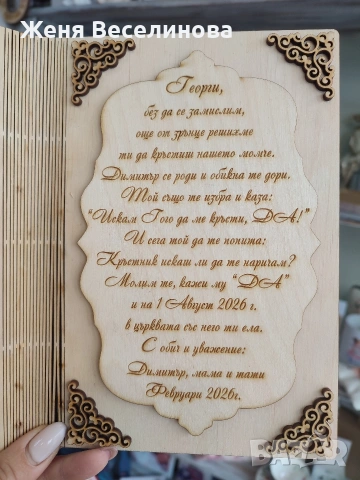 Женя Веселинова
Георги,
без да се замислим,
още от зрънце решихме
ти да кръстиш нашето момче.
Димитър се роди и обикна те дори.
Той също те избра и каза:
"Искам Гого да ме кръсти, ДА!"
И сега той да те попита:
Кръстник искаш ли да те наричам?
Молим те, кажи му "ДА"
и на 1 Август 2026 г.
в църквата със него ти ела.
С обич и уважение:
Димитър, мама и тати
Февруари 2026г.
BAZAR